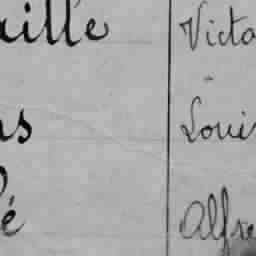 aille Victo
as Louis
é Alfre